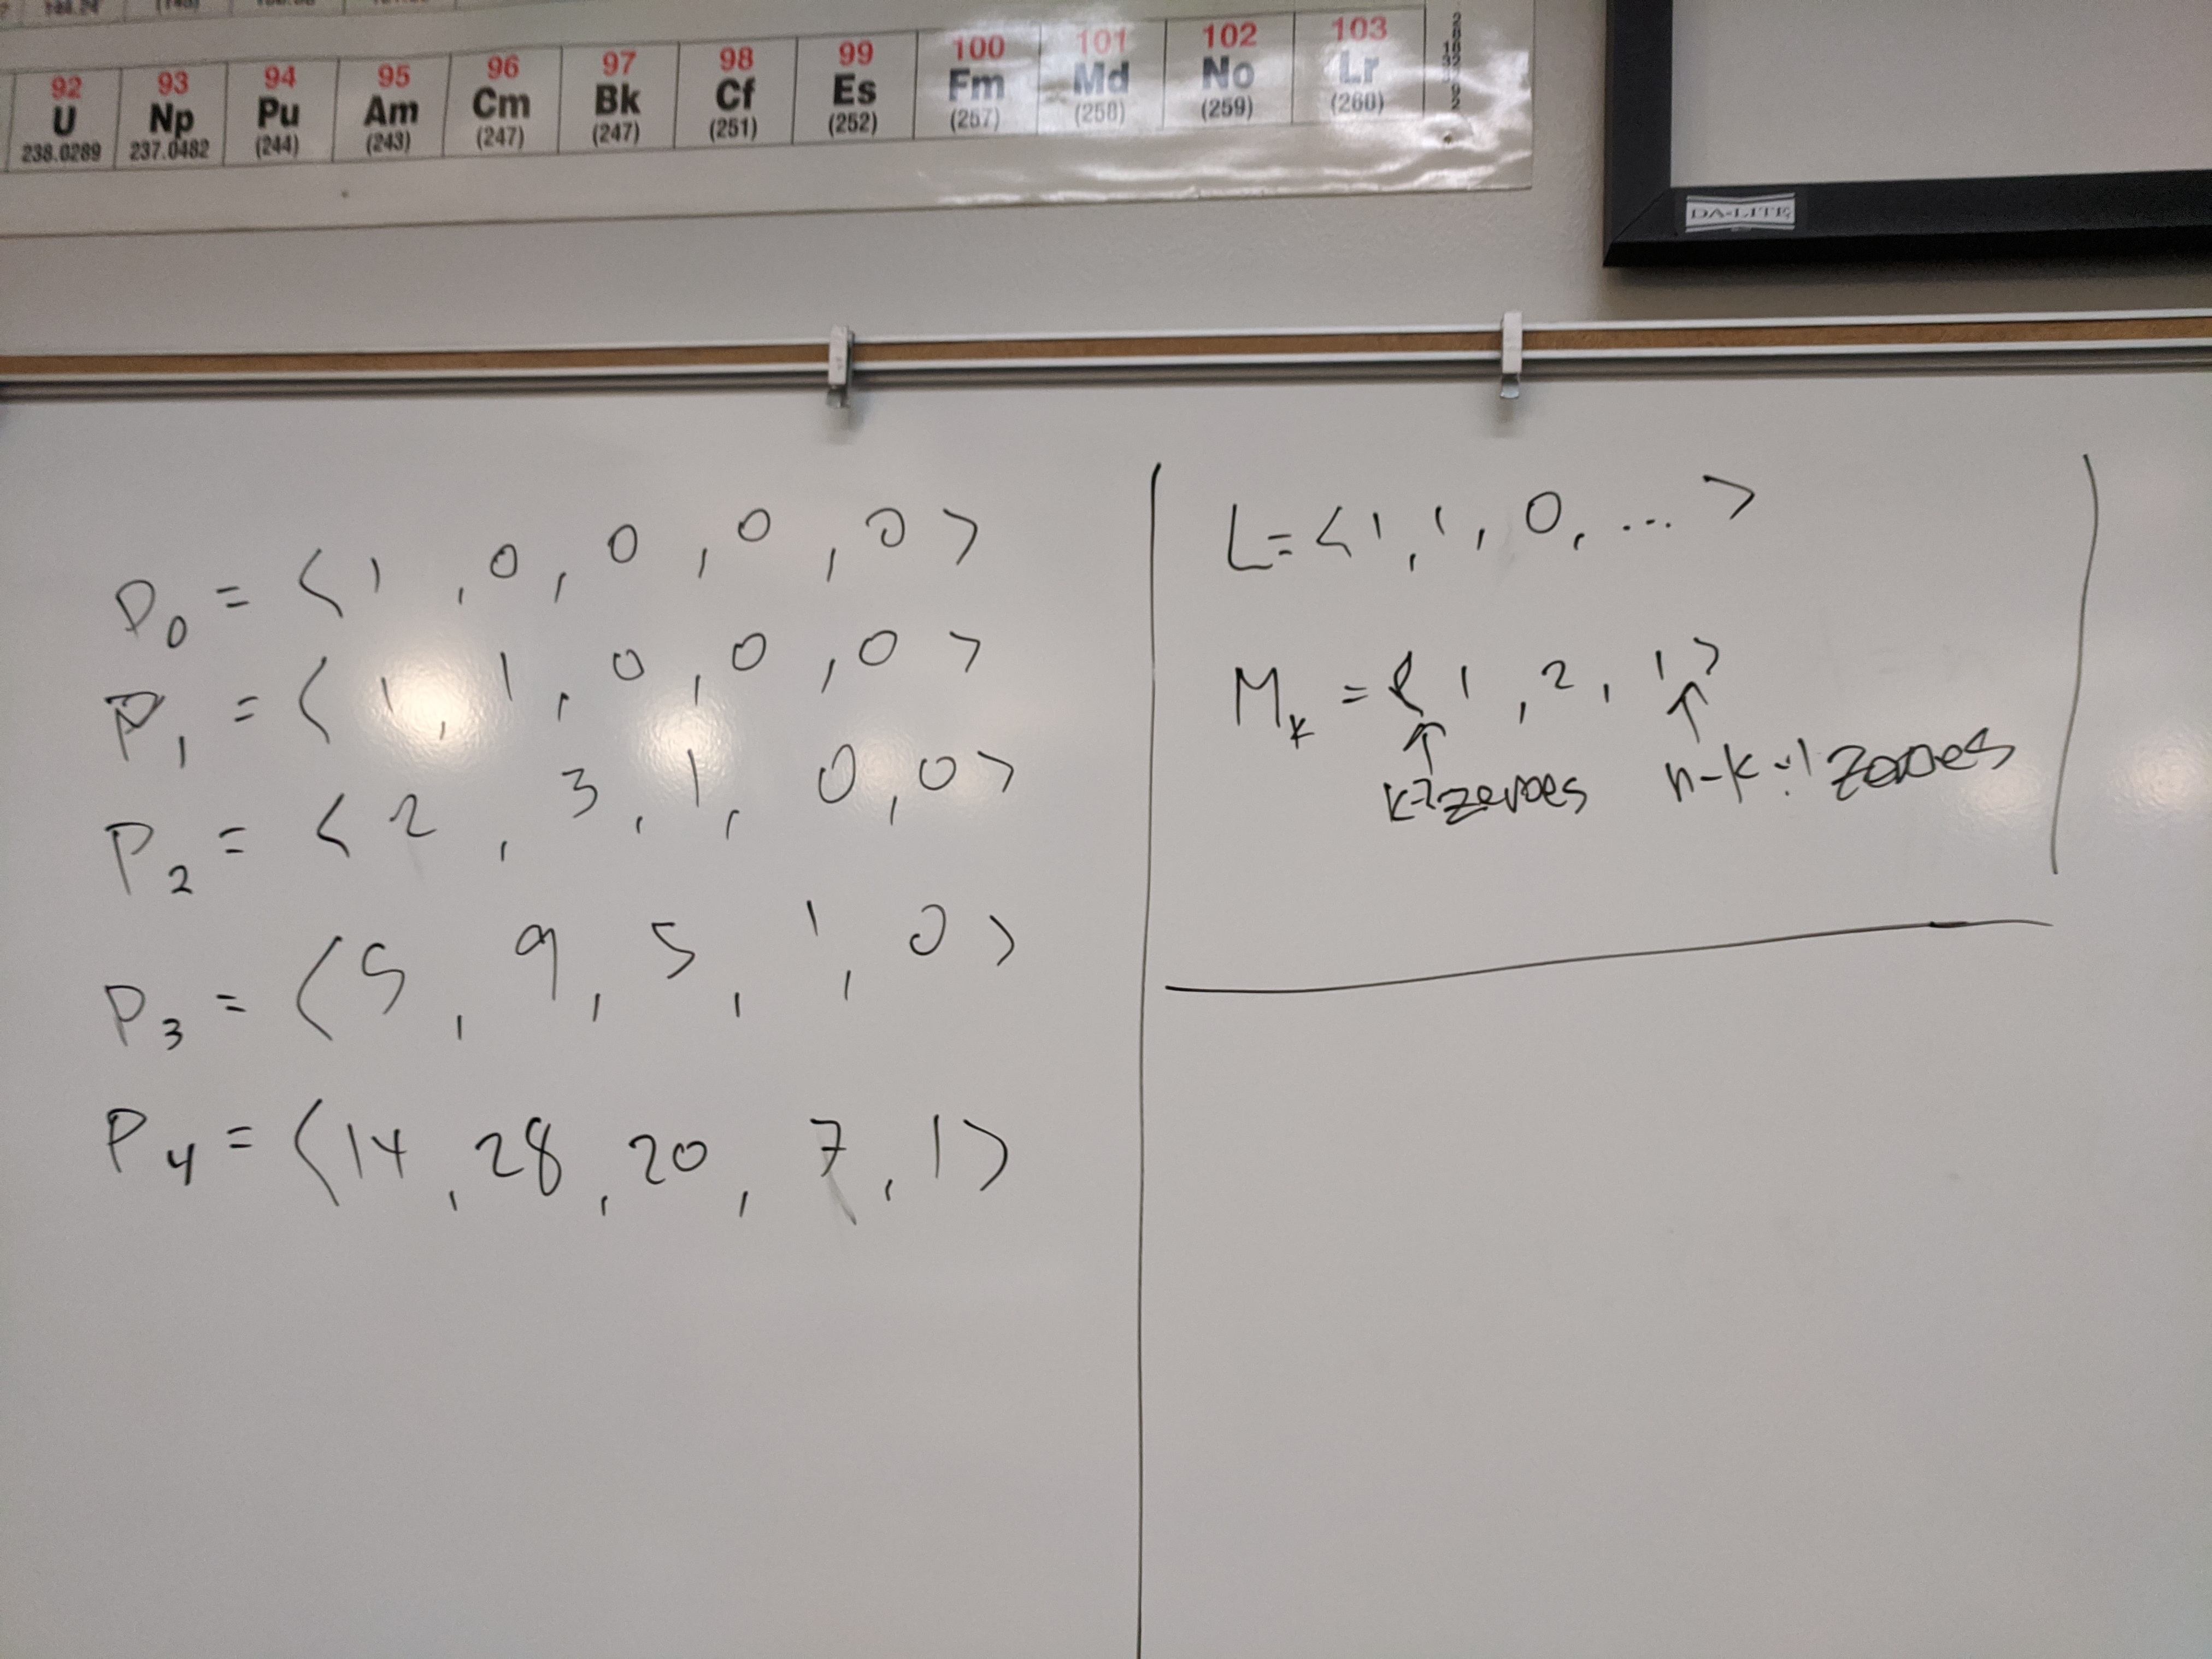 92 93 94 95 96 97 98 99 100 101 102 103
U Np Pu Am Cm Bk Cf Es Fm Md No Lr
238.0289 237.0482 (244) (243) (247) (247) (251) (252) (257) (258) (259) (260)
DA-LITE
P0 = < 1 , 0 , 0 , 0 , 0 >
P1 = < 1 , 1 , 0 , 0 , 0 >
P2 = < 2 , 3 , 1 , 0 , 0 >
P3 = < 5 , 9 , 5 , 1 , 0 >
P4 = < 14 , 28 , 20 , 7 , 1 >
L = < 1 , 1 , 0 , ... >
Mk = < 1 , 2 , 1 >
↑ ↑
k-2 zeroes n-k-1 zeroes